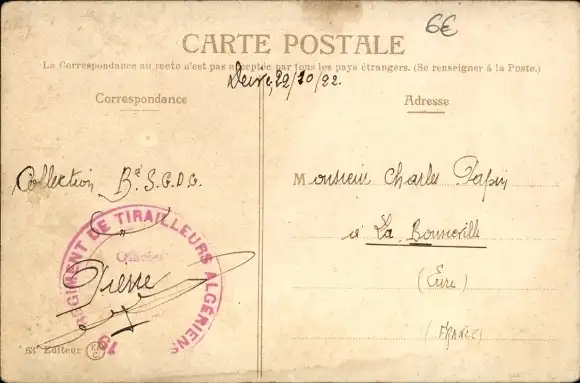 6€
CARTE POSTALE
La Correspondance au recto n'est pas acceptée par tous les pays étrangers. (Se renseigner à la Poste.)
22/10/22.
Correspondance
Adresse
Collection Bté S.G.D.G.
Monsieur Charles Papin
à La Bonneville
(Eure)
(FRANCE)
RÉGIMENT DE TIRAILLEURS ALGÉRIENS
Officier
Pierre
Editeur